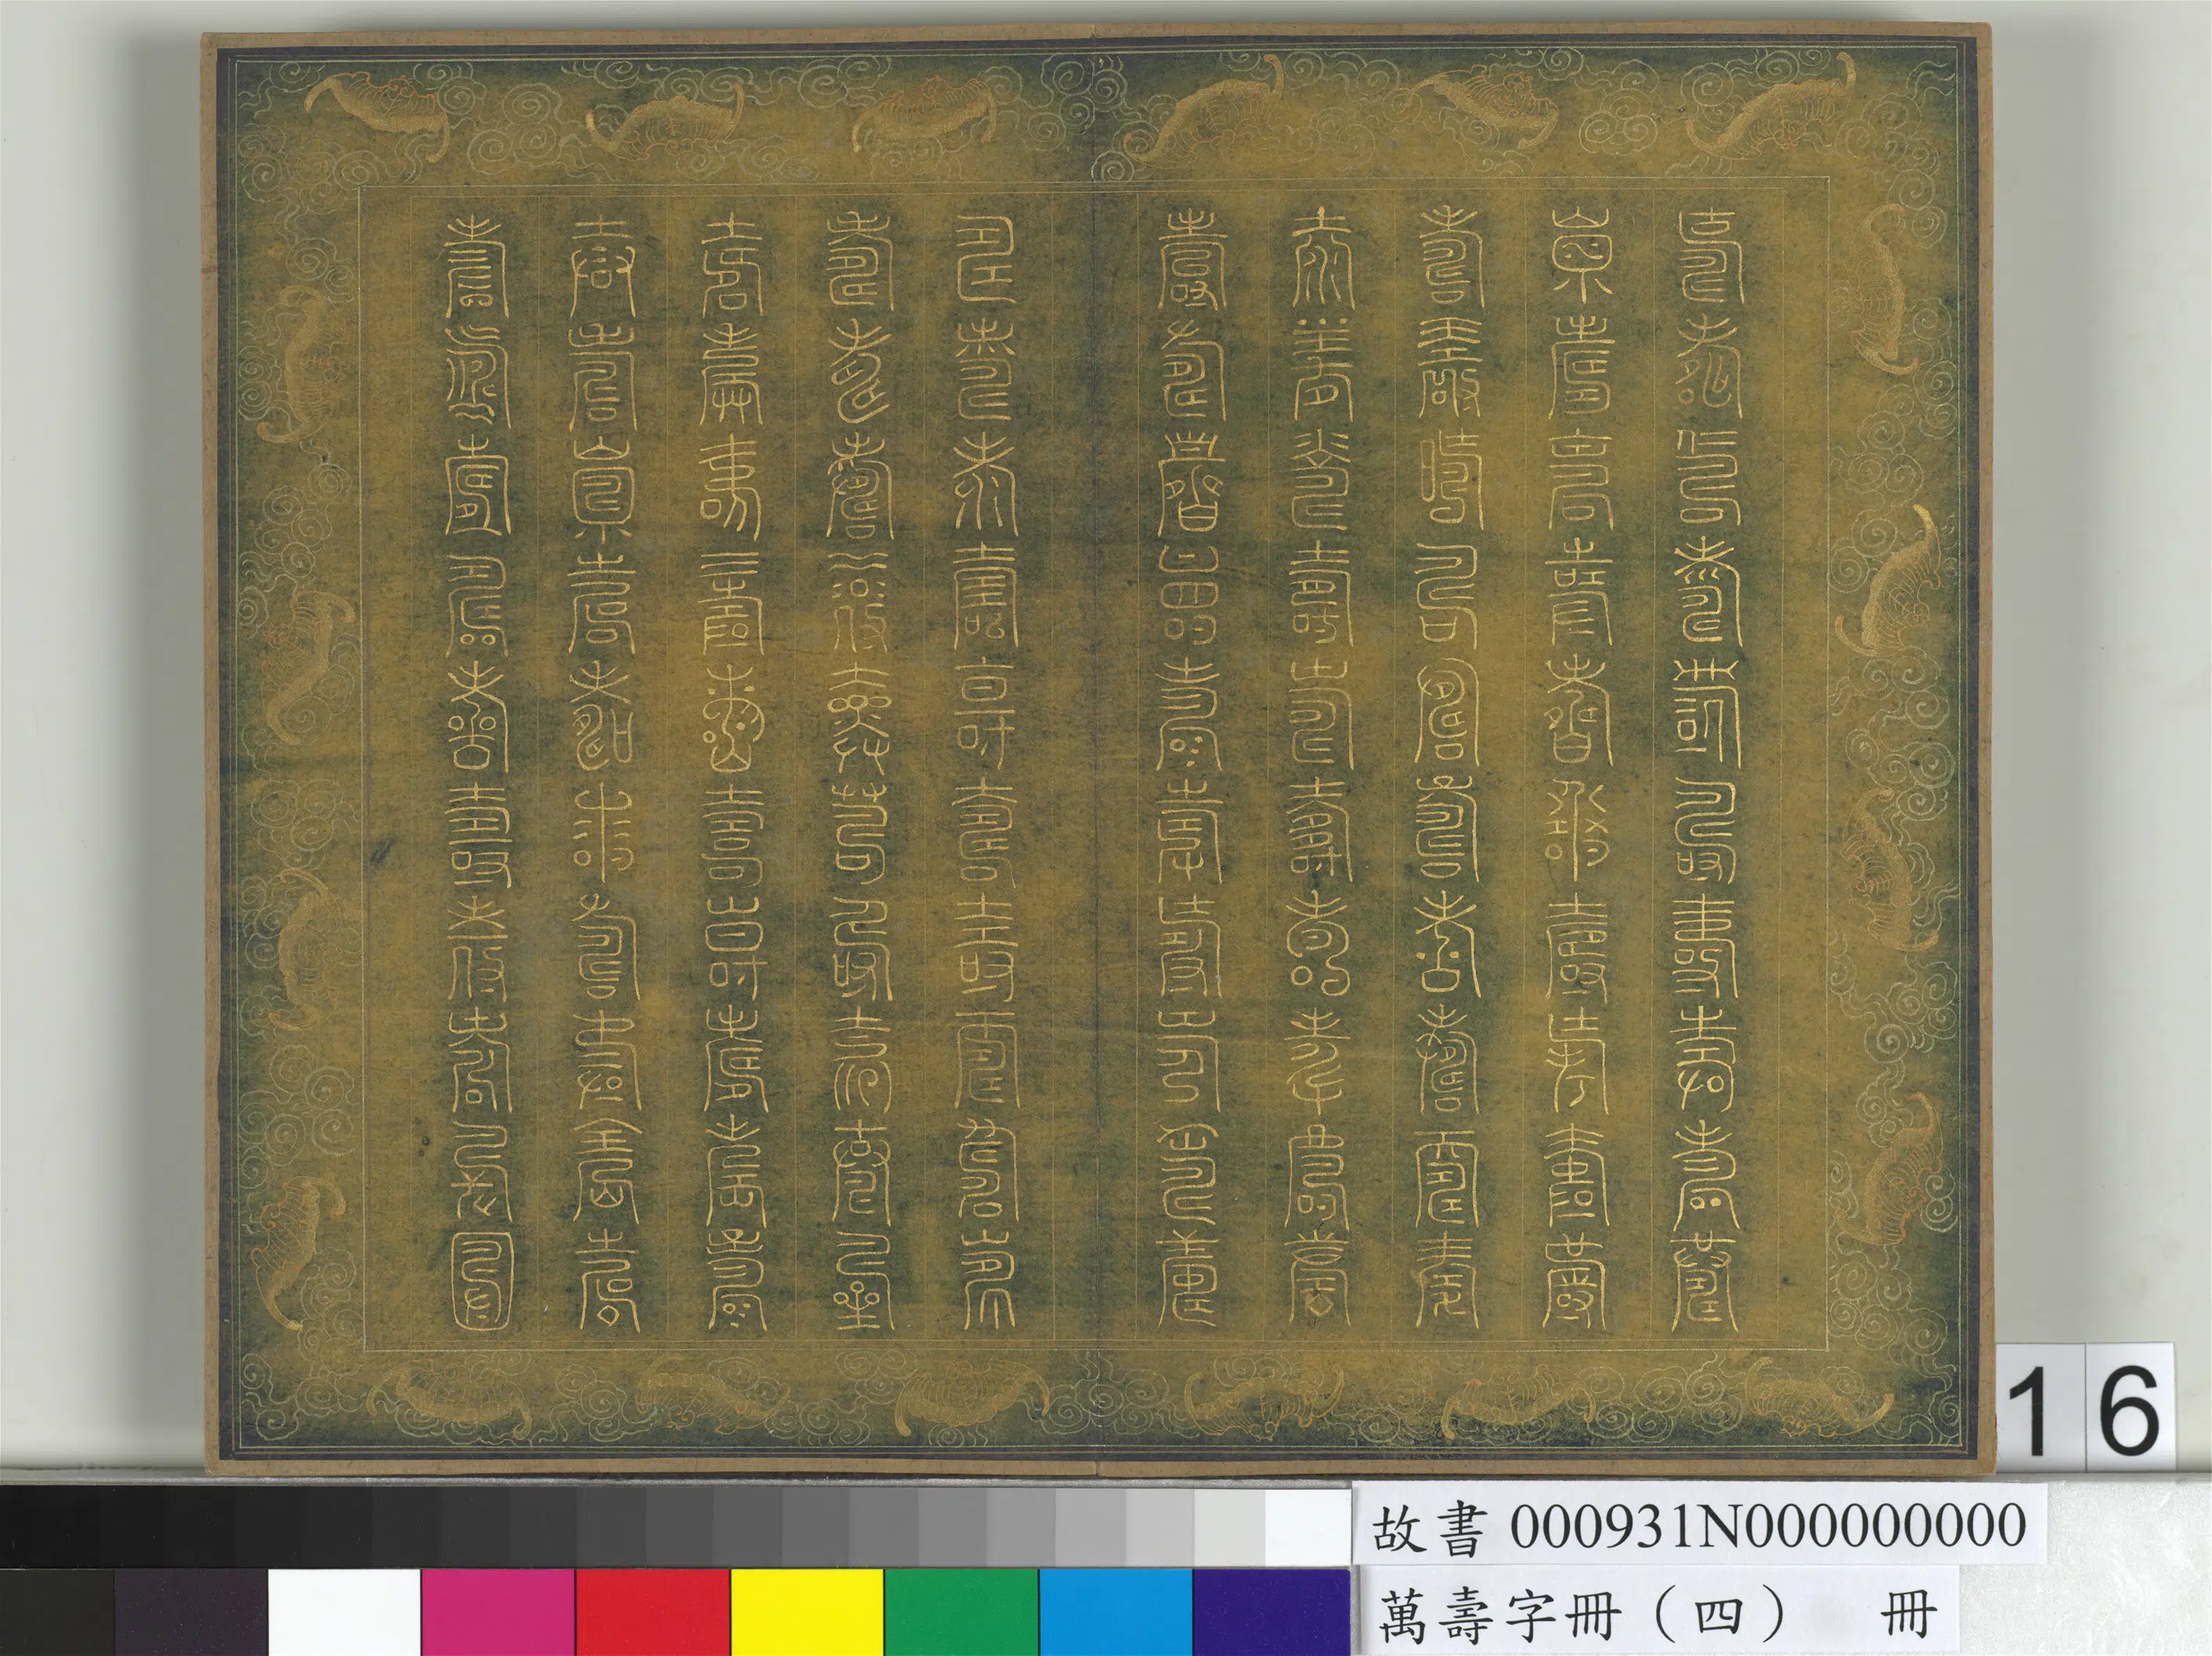 壽壽壽壽壽壽壽壽壽壽
壽壽壽壽壽壽壽壽壽壽
壽壽壽壽壽壽壽壽壽壽
壽壽壽壽壽壽壽壽壽壽
壽壽壽壽壽壽壽壽壽壽
壽壽壽壽壽壽壽壽壽壽
壽壽壽壽壽壽壽壽壽壽
壽壽壽壽壽壽壽壽壽壽
壽壽壽壽壽壽壽壽壽壽
壽壽壽壽壽壽壽壽壽壽
16
故書 000931N000000000
萬壽字冊（四） 冊